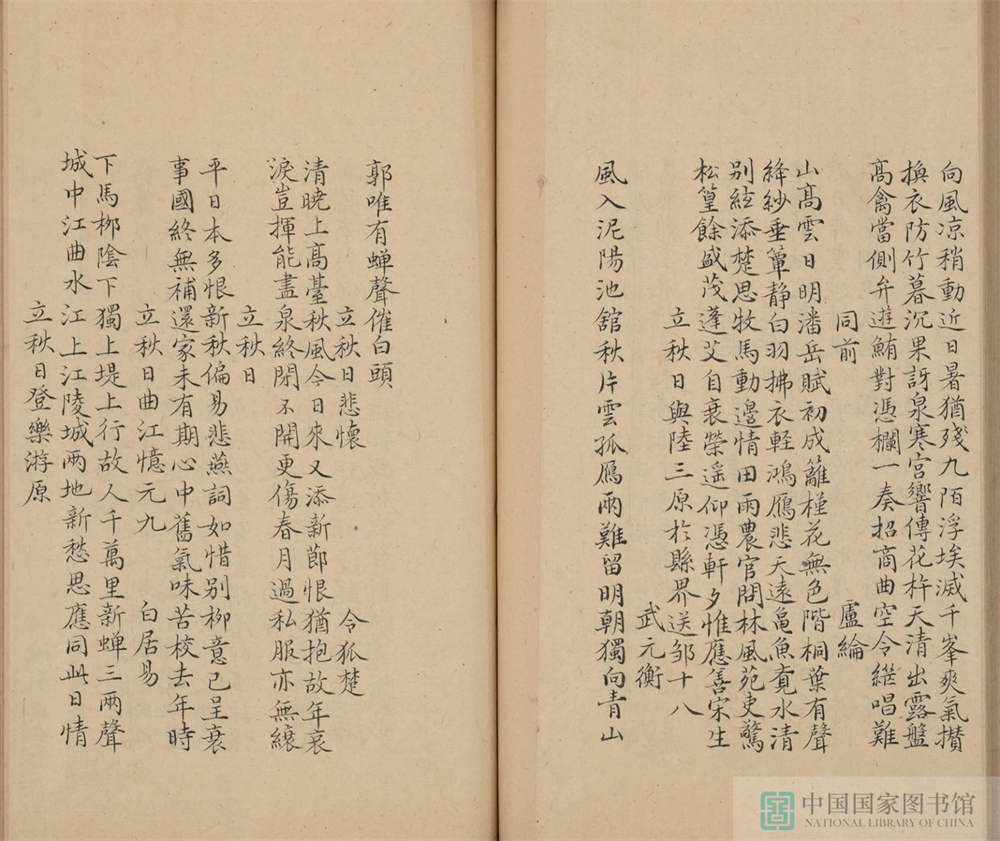 向風凉稍動近日暑猶殘九陌浮埃滅千峯爽氣攢
換衣防竹暮沉果訝泉寒宫響傳花杵天清出露盤
髙禽當側弁遊鮪對憑欄一奏招商曲空令繼唱難
同前 盧綸
山髙雲日明潘岳賦初成籬槿花無色階桐葉有聲
絳紗垂簟静白羽拂衣軽鴻鴈悲天遠龜魚覔水清
別絃添楚思牧馬動邉情田雨農官問林風苑吏驚
松篁餘盛茂蓬艾自衰榮遥仰憑軒夕惟應善宋生
立秋日與陸三原於縣界送邹十八
武元衡
風入泥陽池舘秋片雲孤鴈兩難留明朝獨向青山
郭唯有蟬聲催白頭
立秋日悲懷 令狐楚
清曉上髙䑓秋風今日來又添新節恨猶抱故年哀
淚豈揮能盡泉終閉不開更傷春月過私服亦無縗
立秋日
平日本多恨新秋偏易悲燕詞如惜别柳意已呈衰
事國終無補還家未有期心中舊氣味苦校去年時
立秋日曲江憶元九 白居易
下馬栁陰下獨上堤上行故人千萬里新蟬三兩聲
城中江曲水江上江陵城两地新愁思應同此日情
立秋日登樂游原
中国国家图书馆
NATIONAL LIBRARY OF CHINA